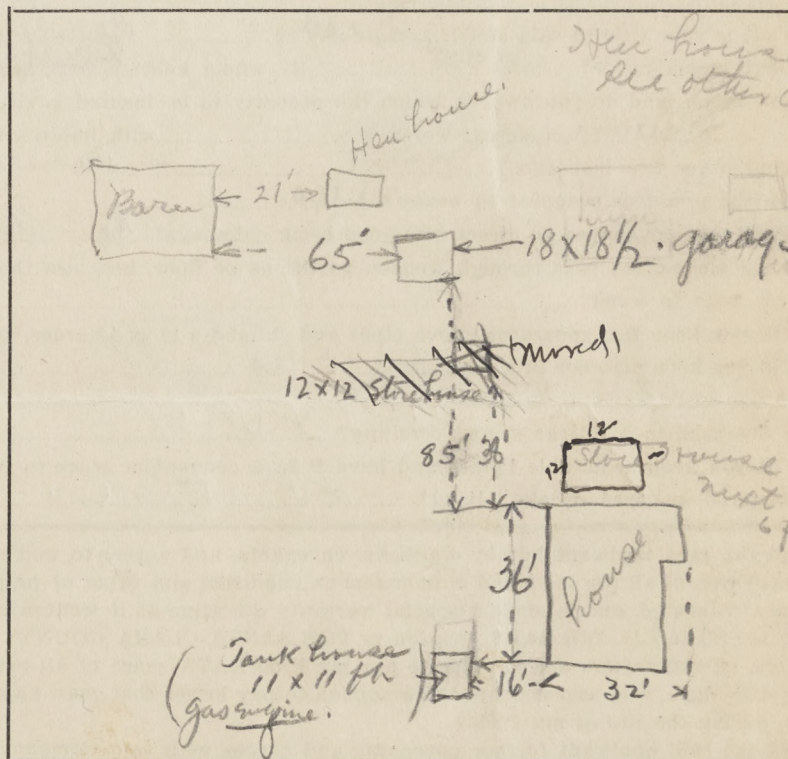 Hen hous
See other
Hen house.
Barn
21'
65'
18 X 18 1/2 . garag
(moved)
12 x 12 Store house
85' 36'
12
12 Store House
next
36'
house
Tank house
11 x 11 ft
gas engine.
16'
32'